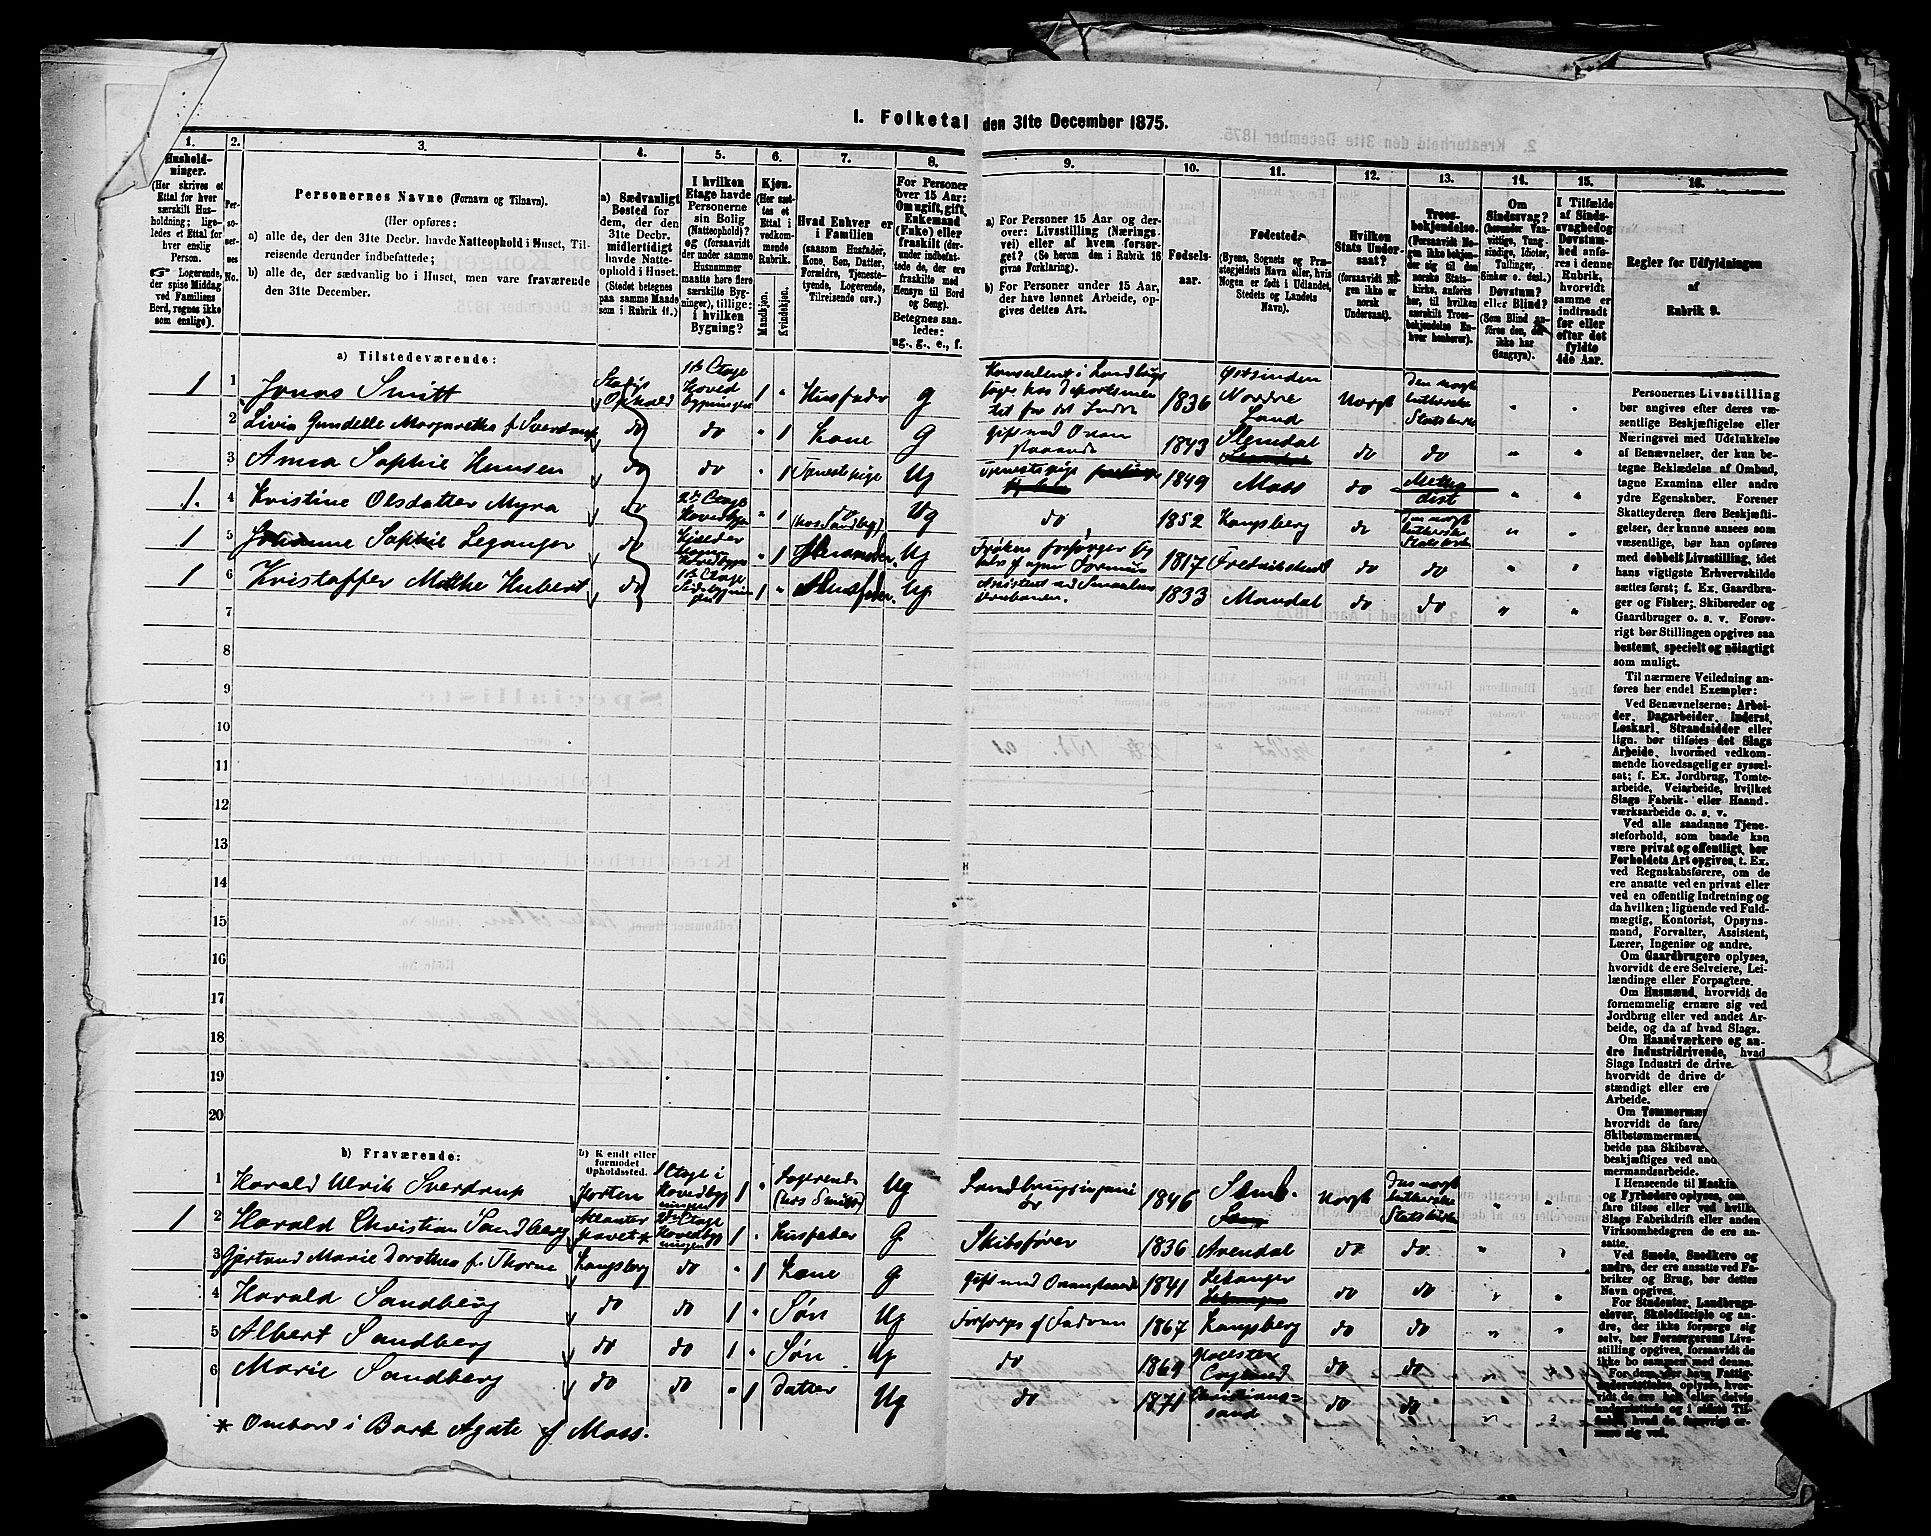 1. Folketal den 31te December 1875.
1. 2. 3. 4. 5. 6. 7. 8. 9. 10. 11. 12. 13. 14. 15. 16.
Hushold-
ninger.
(Her skrives et
Ettal for hver
særskilt Hus-
holdning; lige-
ledes et Ettal for
hver enslig
Person.
Logerende,
der spise Middag
ved Familiens
Bord, regnes ikke
som enslige).
Per-
so-
ner-
nes
No.
Personernes Navne (Fornavn og Tilnavn).
(Her opføres:
a) alle de, der den 31te Decbr. havde Natteophold i Huset, Til-
reisende derunder indbefattede;
b) alle de, der sædvanlig bo i Huset, men vare fraværende
den 31te December.
a) Sædvanligt
Bosted for
dem, der den
31te Decbr.
midlertidigt
havde Natte-
ophold i Huset.
(Stedet betegnes
paa samme Maade
som i Rubrik 11.)
I hvilken
Etage havde
Personerne
sin Bolig
(Natteophold)?
og (forsaavidt
der under samme
Husnummer
maatte høre flere
særskilte Byg-
ninger), tillige:
i hvilken
Bygning?
Kjøn.
(Her sæt-
tes et
Ettal i
vedkom-
mende
Rubrik.
Mandkjøn.
Kvindekjøn.
Hvad Enhver er
i Familien
(saasom Husfader,
Kone, Søn, Datter,
Forældre, Tjeneste-
tyende, Logerende,
Tilreisende osv.)
For Personer
over 15 Aar:
Om ugift, gift,
Enkemand
(Enke) eller
fraskilt (der-
under indbefat-
tede de, der ere
fraskilte med
Hensyn til Bord
og Seng).
Betegnes saa-
ledes:
ug., g., e., f.
a) For Personer 15 Aar og der-
over: Livsstilling (Nærings-
vei) eller af hvem forsør-
get? (Se herom den i Rubrik 16
givne Forklaring).
b) For Personer under 15 Aar,
der have lønnet Arbeide, op-
gives dettes Art.
Fødsels-
aar.
Fødested.
(Byens, Sognets og Præ-
stegjeldets Navn eller, hvis
Nogen er født i Udlandet,
Stedets og Landets
Navn).
Hvilken
Stats Under-
saat?
(forsaavidt No-
gen ikke er
norsk
Undersaat).
Troes-
bekjendelse.
(Forsaavidt No-
gen ikke bekjen-
der sig til den
norske Stats-
kirke, anføres
her, til hvilken
særskilt Troes-
bekjendelse En-
hver henhører).
Om
Sindssvag?
(herunder Van-
vittige, Tung-
sindige, Idioter,
Tullinger,
Sinker o. desl.)
Døvstum?
eller Blind?
(Som Blind an-
føres den, der
ikke har
Gangsyn).
I Tilfælde
af Sinds-
svaghed og
Døvstum-
hed anfø-
res i denne
Rubrik,
hvorvidt
samme er
indtraadt
før eller
efter det
fyldte
4de Aar.
Regler for Udfyldningen
af
Rubrik 9.
a) Tilstedeværende:
1 1 Jonas Smitt Stadig Ophold 1ste Etage Hoved bygningen 1 " Husfader G Konsulent i Landbrugs 1836 Nordre Land Norsk Den norsk lutherske Statskirke " "
2 Livia Gundelle Margaretha f. Sverdrup do do " 1 Kone G Gift med Ovan 1843 Slemdal do do " "
3 Anna Sophie Hansen do do " 1 Tjenestepige Ug Tjenestepige 1849 Moss do Metho dist " "
1. 4 Kristine Olsdatter Myra do 2den Etage Hovedbygn " 1 do (hos Sandberg) Ug do 1852 Kongsberg do Den norsk lutherske Statskirke " "
1 5 Johanne Sophie Leganger do Kjelder Hovedbygn " 1 Ug Frøken forsørger sig 1817 Fredrikstad do do " "
1 6 Kristoffer Mathe Hubert do 1ste Etage Sidebygnin gen 1 " Husfader Ug Assistent ved Smaalens 1833 Mandal do do " "
7
8
9
10
11
12
13
14
15
16
17
18
19
20
b) Fraværende:
b) Kjendt eller
formodet
Opholdssted.
1 Harald Ulrik Sverdrup Horten 1 Etage i Hovedbyg ningen 1 " Logerende (hos Smitt) Ug Landbrugsingeni ør 1846 Norsk Den norsk lutherske Statskirke " "
1 2 Harald Christian Sandberg Atlanter havet * 2den Etage Hovedbyg ningen 1 " Husfader G Skibsfører 1836 Arendal do do " "
3 Gjertrud Marie Dorothea f. Thorne Kongsberg do " 1 Kone G Gift med Ovanstaaende 1841 Lekanger do do " "
4 Harald Sandberg do do 1 " Søn Ug Forsørges af Faderen 1867 Kongsberg do do " "
5 Albert Sandberg do do 1 " Søn Ug do 1869 do do " "
6 Marie Sandberg do do " 1 Datter Ug do 1871 Christians= sand do do " "
* Ombord i Bark Agate af Moss.
Personernes Livsstilling
bør angives efter deres væ-
sentlige Beskjæftigelse eller
Næringsvei med Udelukkelse
af Benævnelser, der kun be-
tegne Beklædelse af Ombud,
tagne Examina eller andre
ydre Egenskaber. Forener
Skatteyderen flere Beskjæfti-
gelser, der kunne ansees som
væsentlige, bør han opføres
med dobbelt Livsstilling, idet
hans vigtigste Erhvervskilde
sættes først; f. Ex. Gaardbru-
ger og Fisker; Skibsreder og
Gaardbruger o. s. v. Forøv-
rigt bør Stillingen opgives saa
bestemt, specielt og nøiagtigt
som muligt.
Til nærmere Veiledning an-
føres her endel Exempler:
Ved Benævnelserne: Arbei-
der, Dagarbeider, Inderst,
Løskarl, Strandsidder eller
lign. bør tilføies det Slags
Arbeide, hvormed vedkom-
mende hovedsagelig er syssel-
sat; f. Ex. Jordbrug, Tomte-
arbeide, Veiarbeide, hvilket
Slags Fabrik- eller Haand-
værksarbeide o. s. v.
Ved alle saadanne Tjene-
steforhold, som baade kan
være privat og offentligt, bør
Forholdets Art opgives, t. Ex.
ved Regnskabsførere, om de
ere ansatte ved en privat eller
ved en offentlig Indretning og
da hvilken; lignende ved Fuld-
mægtig, Kontorist, Opsyns-
mand, Forvalter, Assistent,
Lærer, Ingeniør og andre.
Om Gaardbrugere oplyses,
hvorvidt de ere Selveiere, Lei-
lændinge eller Forpagtere.
Om Husmænd, hvorvidt de
fornemmelig ernære sig ved
Jordbrug eller ved andet Ar-
beide, og da af hvad Slags.
Om Haandværkere og an-
dre Industridrivende, hvad
Slags Industri de drive
hvorvidt de drive
stændigt eller ere
Arbeide.
Om Tømmermæn
hvorvidt de fare
Skibstømmermæn
beide paa Skibsvæ
beskjæftiges ved and
mermandsarbeide.
I Henseende til Maskin
og Fyrbødere oplyses, om
fare tilsøs eller ved hvilke
Slags Fabrikdrift eller anden
Virksomhedsgren de ere an-
satte.
Ved Smede, Snedkere og
andre, der ere ansatte ved Fa-
briker og Brug, bør dettes
Navn opgives.
For Studenter, Landbrugs-
elever, Skoledisciple og an-
dre, der ikke forsørge sig
selv, bør Forsørgerens Live-
stilling opgives, forsaavidt de
ikke bo sammen med denne.
For dem, der have Fattig-
understøttelse, oplyses, hvor-
vidt de ere helt eller delvis
understøttede og i sidste Til-
fælde, hvad de forøvrigt er-
nære sig ved.